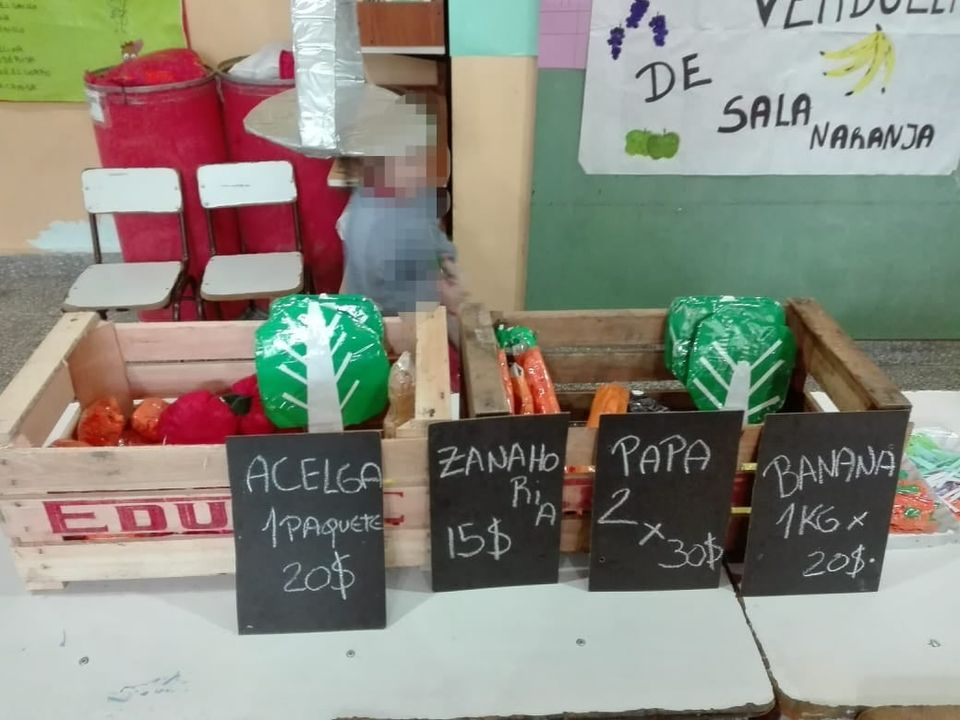 DE
SALA
NARANJA
EDU
ACELGA
1 PAQUETE
20$
ZANAHO
RI
A
15$
PAPA
2 x
30$
BANANA
1KG x
20$.